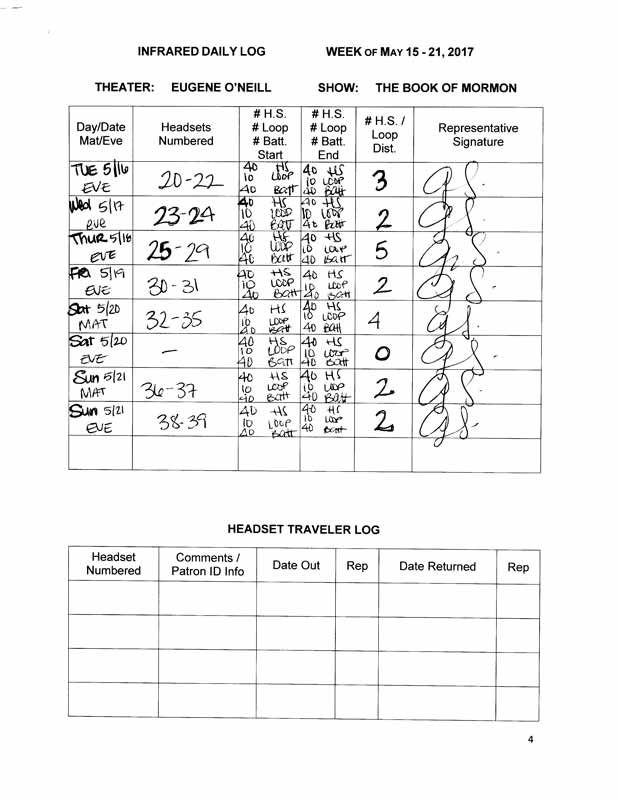 INFRARED DAILY LOG WEEK OF MAY 15 - 21, 2017
THEATER: EUGENE O'NEILL SHOW: THE BOOK OF MORMON
Day/Date Mat/Eve
Headsets Numbered
# H.S. # Loop # Batt. Start
# H.S. # Loop # Batt. End
# H.S. / Loop Dist.
Representative Signature
TUE 5/16 EVE
20-22
40 HS 10 LOOP 40 Batt
40 HS 10 LOOP 40 Batt
3
Wed 5/17 eve
23-24
40 HS 10 LOOP 40 Batt
40 HS 10 LOOP 40 Batt
2
Thur 5/18 EVE
25-29
40 HS 10 LOOP 40 Batt
40 HS 10 LOOP 40 Batt
5
Fri 5/19 EVE
30-31
40 HS 10 LOOP 40 Batt
40 HS 10 LOOP 40 Batt
2
Sat 5/20 MAT
32-35
40 HS 10 LOOP 40 Batt
40 HS 10 LOOP 40 Batt
4
Sat 5/20 EVE
—
40 HS 10 LOOP 40 Batt
40 HS 10 LOOP 40 Batt
0
Sun 5/21 MAT
36-37
40 HS 10 LOOP 40 Batt
40 HS 10 LOOP 40 Batt
2
Sun 5/21 EVE
38-39
40 HS 10 LOOP 40 Batt
40 HS 10 LOOP 40 Batt
2
HEADSET TRAVELER LOG
Headset Numbered
Comments / Patron ID Info
Date Out
Rep
Date Returned
Rep
4